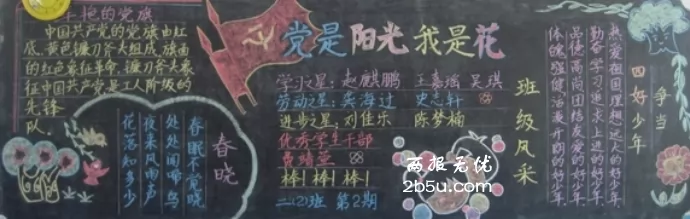 鲜艳的党旗
中国共产党的党旗由红
底、黄色镰刀斧头组成，旗面
的红色象征革命，镰刀斧头象
征中国共产党是工人阶级的
先锋
队。
春晓
春眠不觉晓
处处闻啼鸟
夜来风雨声
花落知多少
党是阳光我是花
学习之星：赵麒鹏 王嘉瑶 吴琪
劳动之星：龚海过 史志轩
进步之星：刘佳乐 陈梦楠
优秀学生干部
棒！棒！棒！
二(2)班 第2期
班级风采
争当
四好少年
热爱祖国理想远大的好少年
勤奋学习追求上进的好少年
品德高尚团结友爱的好少年
体魄强健活泼开朗的好少年
两报无忧
2b5u.com